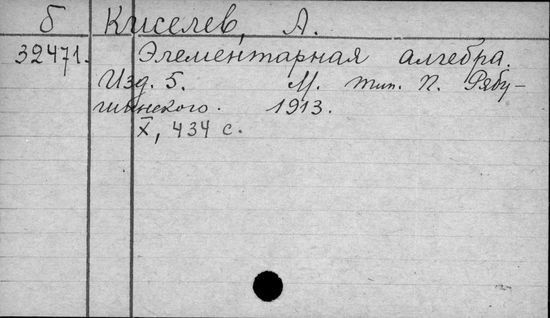 б Киселев, А.
32471. Элементарная алгебра.
Изд. 5. М. тип. П. Рябу-
шинского. 1913.
X, 434 с.